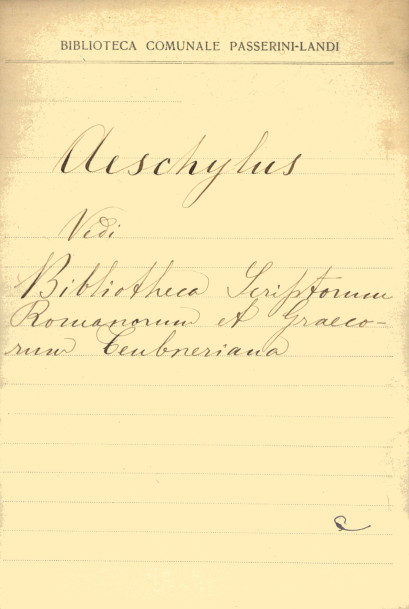 BIBLIOTECA COMUNALE PASSERINI-LANDI
Aeschylus
Vedi
Bibliotheca Scriptorum
Romanorum et Graeco-
rum Teubneriana